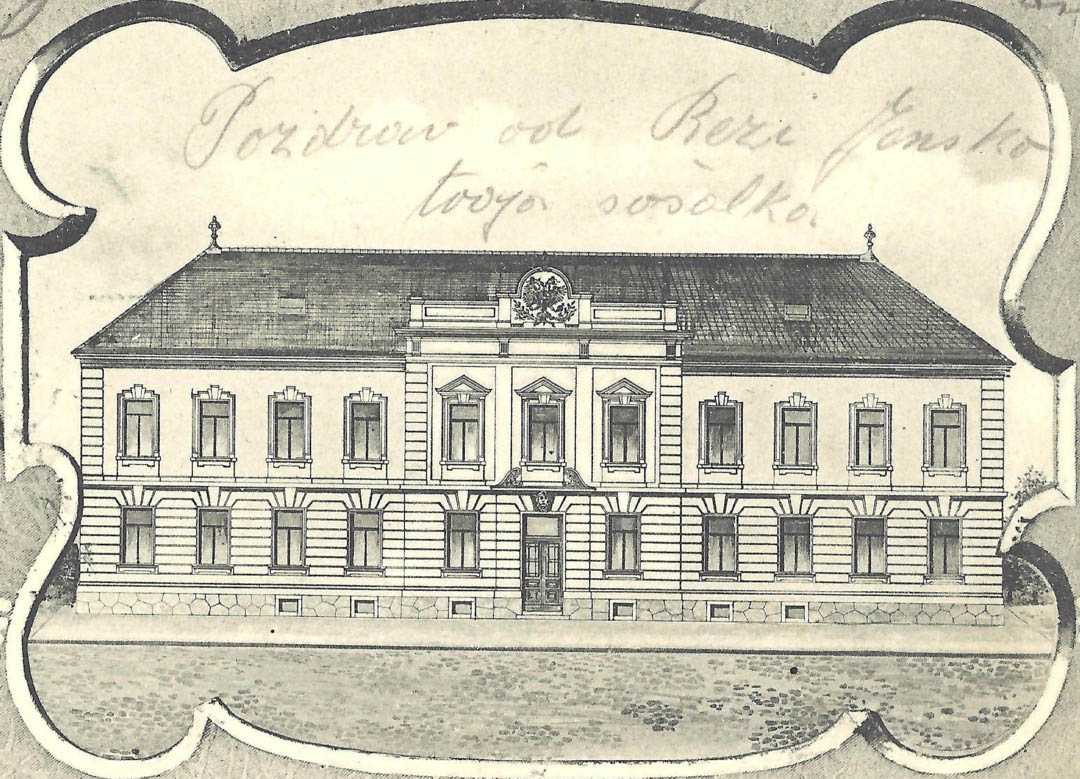 Pozdrav od Rezi Jensko
tvoja sošolka.